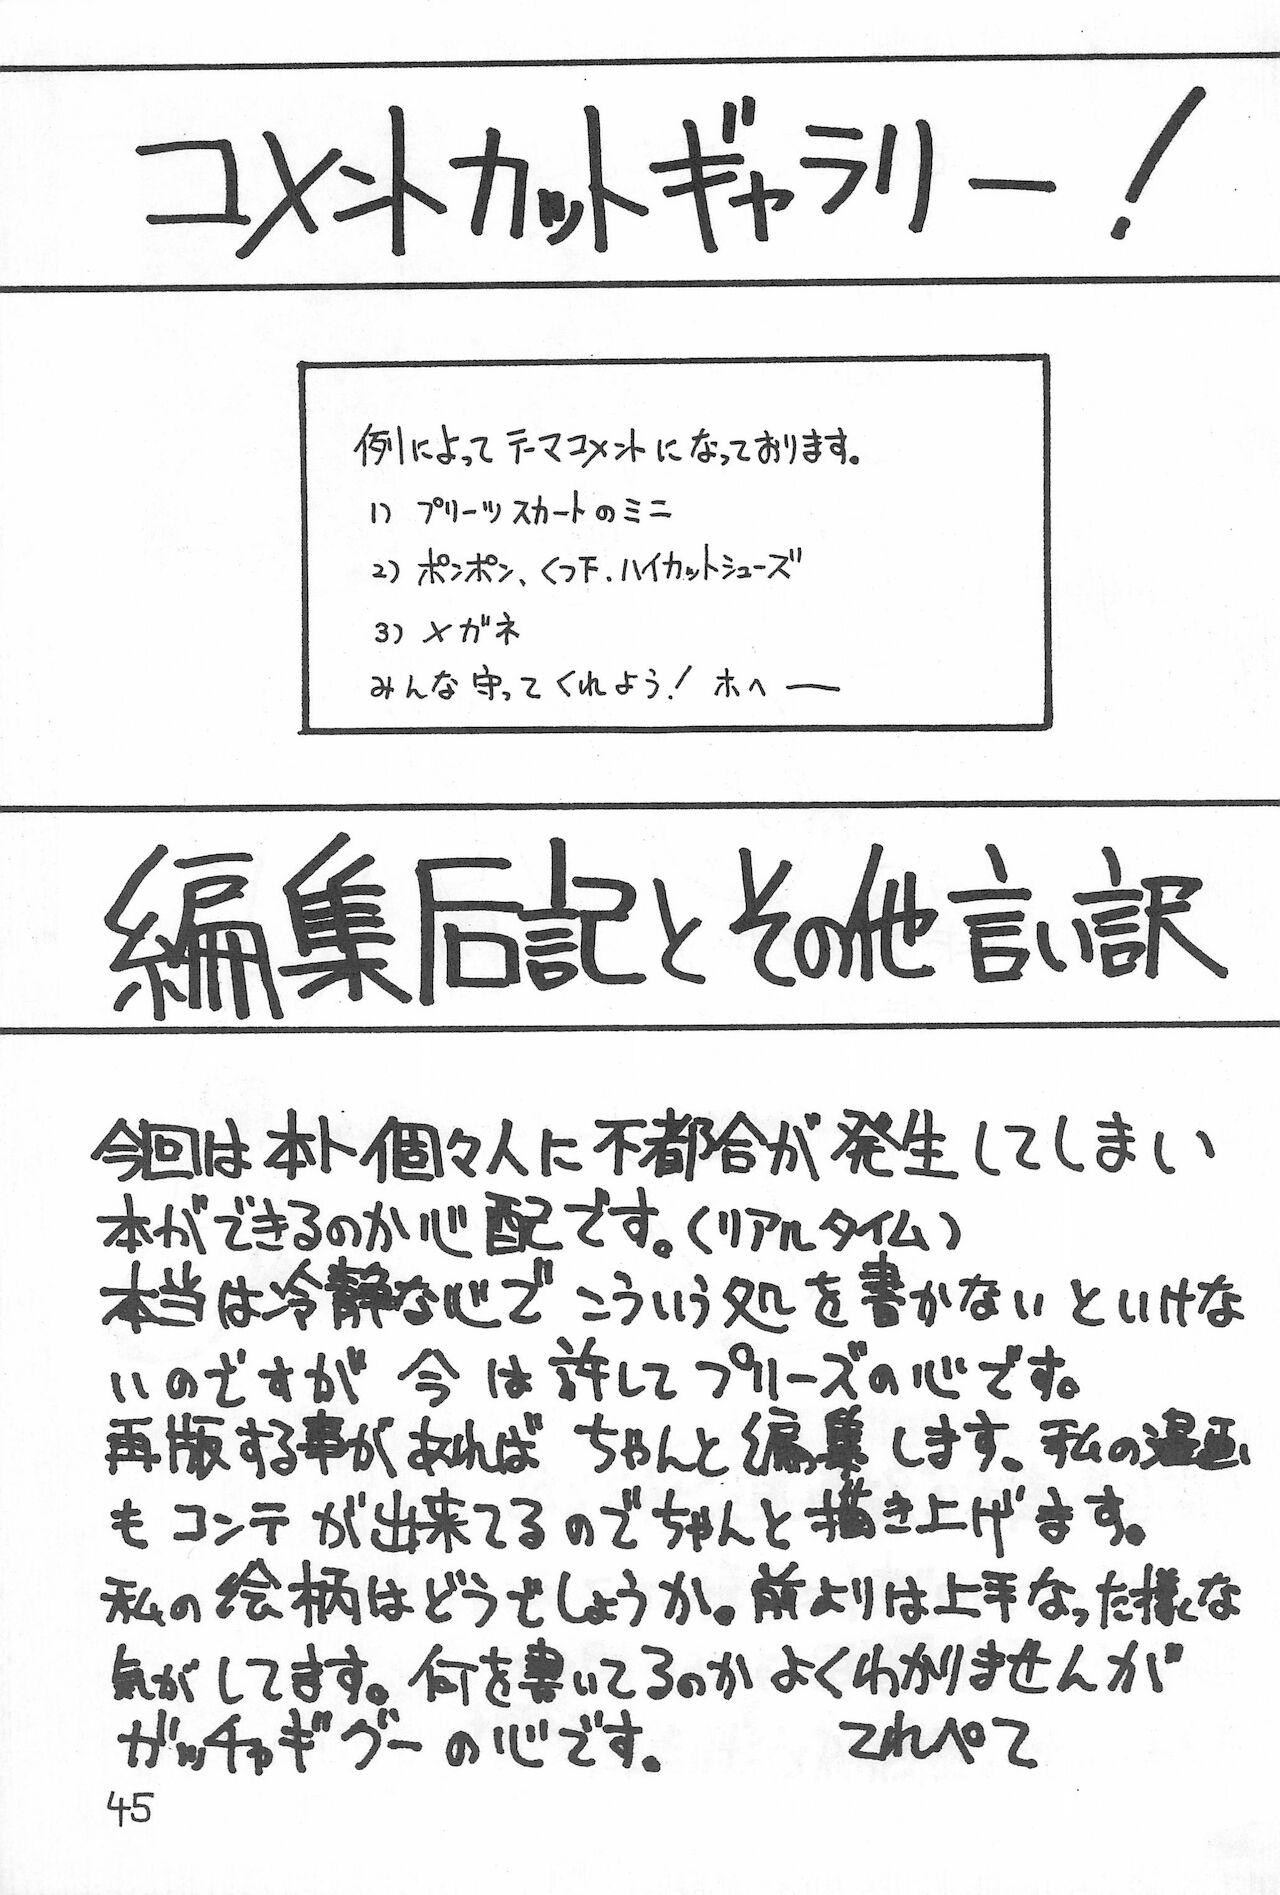 コメントカットギャラリー！
例によってテーマコメントになっております。
1) プリーツスカートのミニ
2) ポンポン、くつ下、ハイカットシューズ
3) メガネ
みんな守ってくれよう！ホヘー
編集后記とその他言い訳
今回は本ト個々人に不都合が発生してしまい
本ができるのか心配です。(リアルタイム)
本当は冷静な心でこういう処を書かないといけな
いのですが今は許してプリーズの心です。
再版する事があればちゃんと編集します。私の漫画
もコンテが出来てるのでちゃんと描き上げます。
私の絵柄はどうでしょうか。前よりは上手なった様な
気がしてます。何を書いてるのかよくわかりませんが
ガッチャギグーの心です。 てれぺて
45